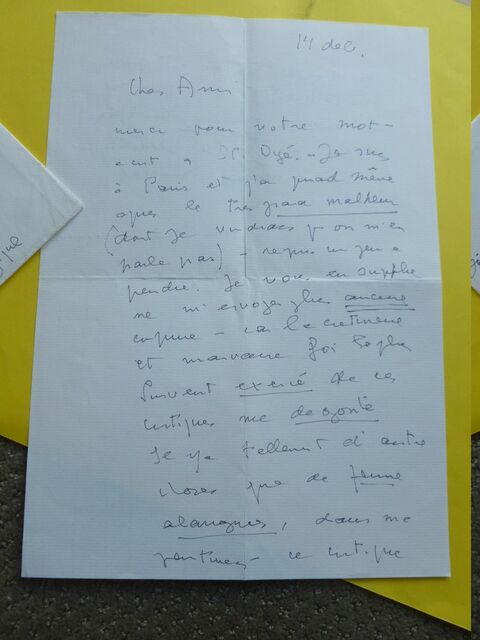 14 dec.
Cher Ami
merci pour votre mot -
à St. Dyé. - Je suis
à Paris et j'ai quand même
après le très grand malheur
(dont je voudrais qu'on m'en
parle pas) - repris un peu à
peindre. Je vous en supplie
ne m'envoyez plus aucune
coupure - car la
et mauvaise foi la plus
souvent de ces
critiques me dégoûte
Il y a tellement d'autre
choses que de femme
alanguies, dans me
peintures - ce critique